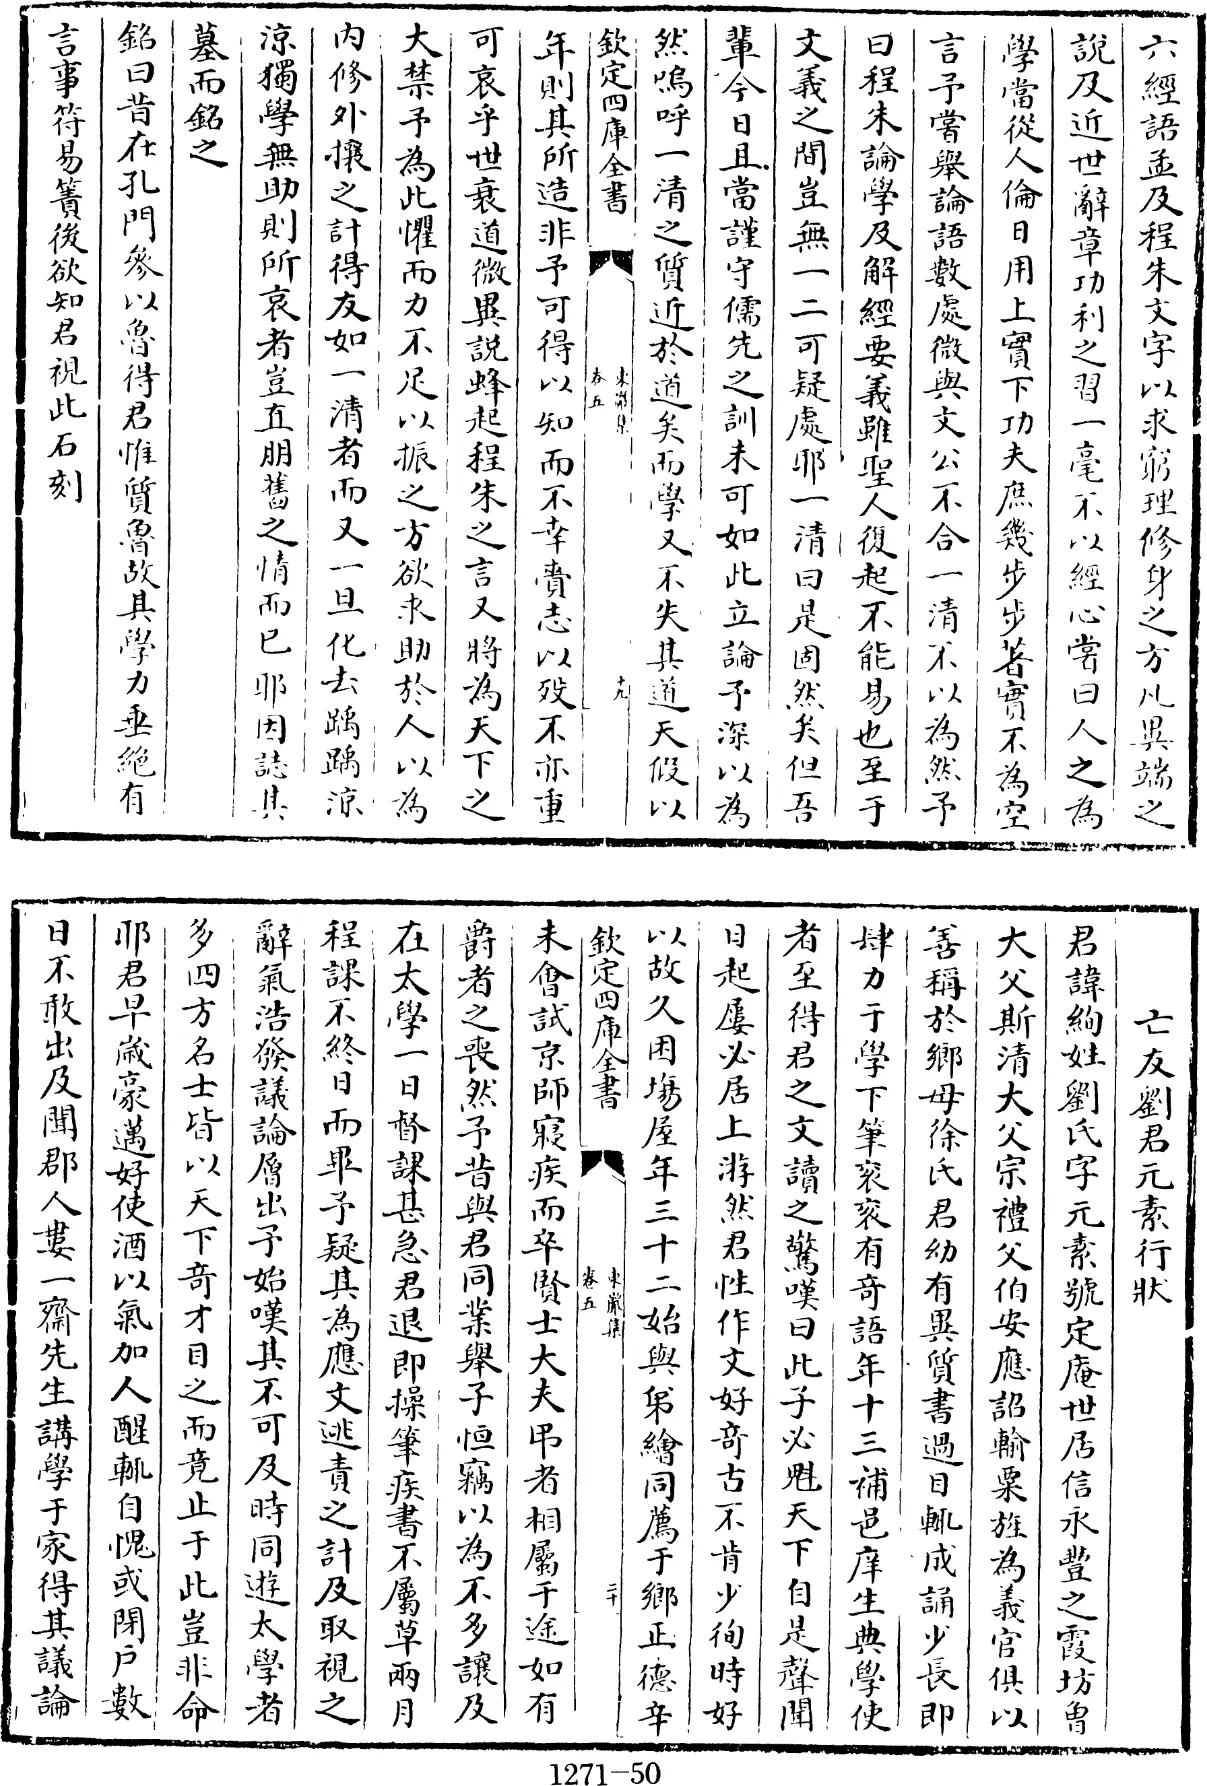 六經語孟及程朱文字以求窮理修身之方凡異端之
說及近世辭章功利之習一毫不以經心嘗曰人之為
學當從人倫日用上實下功夫庶幾步步著實不為空
言予嘗舉論語數處微與文公不合一清不以為然予
曰程朱論學及解經要義雖聖人復起不能易也至于
文義之間豈無一二可疑處耶一清曰是固然矣但吾
輩今日且當謹守儒先之訓未可如此立論予深以為
然嗚呼一清之質近於道矣而學又不失其道天假以
欽定四庫全書
東巖集
卷五
十九
年則其所造非予可得以知而不幸賷志以歿不亦重
可哀乎世衰道微異説蜂起程朱之言又將為天下之
大禁予為此懼而力不足以振之方欲求助於人以為
内修外攘之計得友如一清者而又一旦化去踽踽涼
涼獨學無助則所哀者豈直朋舊之情而已耶因誌其
墓而銘之
銘曰昔在孔門參以魯得君惟質魯故其學力垂絶有
言事符易簀後欲知君視此石刻
亡友劉君元素行狀
君諱絢姓劉氏字元素號定庵世居信永豐之霞坊曽
大父斯清大父宗禮父伯安應詔輸粟旌為義官俱以
善稱於鄉母徐氏君幼有異質書過目輒成誦少長即
肆力于學下筆衮衮有奇語年十三補邑庠生典學使
者至得君之文讀之驚嘆曰此子必魁天下自是聲聞
日起屢必居上游然君性作文好奇古不肯少徇時好
以故久困場屋年三十二始與弟繪同薦于鄉正德辛
欽定四庫全書
東巖集
卷五
二十
未會試京師寢疾而卒賢士大夫弔者相屬于途如有
爵者之喪然予昔與君同業舉子恒竊以為不多讓及
在太學一日督課甚急君退即操筆疾書不屬草兩月
程課不終日而畢予疑其為應文逃責之計及取視之
辭氣浩發議論層出予始嘆其不可及時同遊太學者
多四方名士皆以天下奇才目之而竟止于此豈非命
耶君早嵗豪邁好使酒以氣加人醒輒自愧或閉户數
日不敢出及聞郡人婁一齋先生講學于家得其議論
1271-50